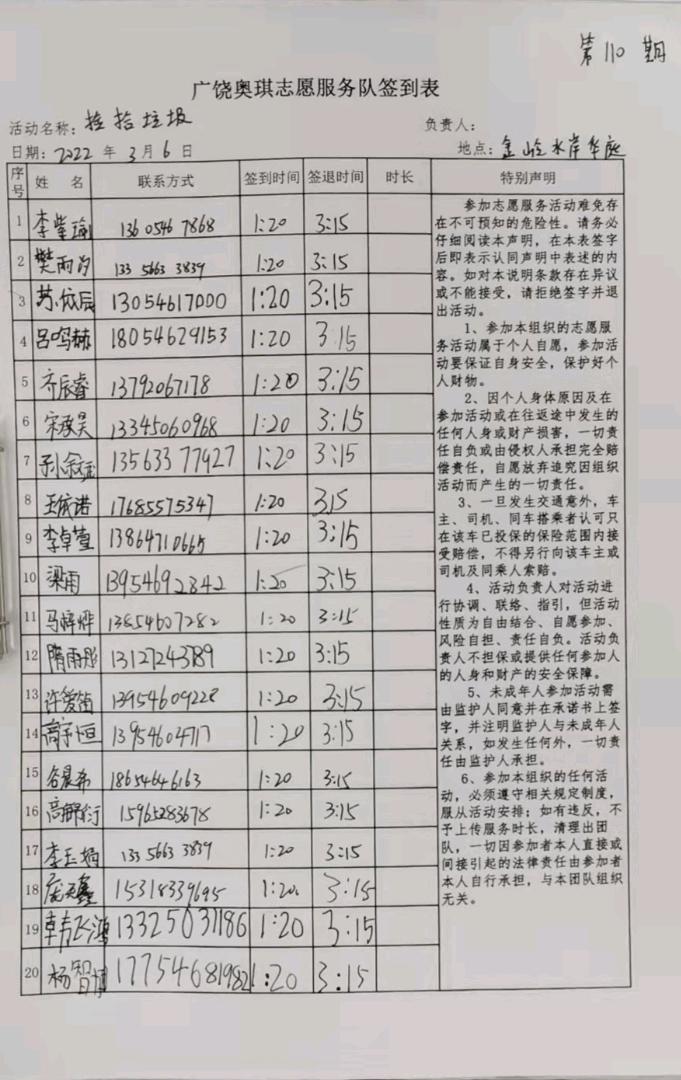 第110期
广饶奥琪志愿服务队签到表
活动名称：捡拾垃圾 负责人：
日期：2022 年 3 月 6 日 地点：金岭水岸华庭
序号 姓 名 联系方式 签到时间 签退时间 时长 特别声明
1 李紫瑜 13605467868 1:20 3:15
2 樊雨汐 133 5663 3839 1:20 3:15
3 苏依辰 13054617000 1:20 3:15
4 吕鸣赫 18054629153 1:20 3:15
5 齐辰睿 13792067178 1:20 3:15
6 宋承昊 13345060968 1:20 3:15
7 孙余 13563377427 1:20 3:15
8 王依诺 17685575347 1:20 315
9 李卓萱 13864710665 1:20 3:15
10 梁雨 13954692842 1:20 3:15
11 马梓烨 13854607282 1:20 3:15
12 隋雨彤 13127243789 1:20 3:15
13 许爱笛 13954609228 1:20 3:15
14 高宇恒 13954604717 1:20 3:15
15 谷晨希 18654646163 1:20 3:15
16 高 15965283678 1:20 3:15
17 李 133 5663 3839 1:20 3:15
18 15318339695 1:20 3:15
19 韩飞鸿 13325031186 1:20 3:15
20 杨智博 17754681982 1:20 3:15
参加志愿服务活动难免存
在不可预知的危险性。请务必
仔细阅读本声明，在本表签字
后即表示认同声明中表述的内
容。如对本说明条款存在异议
或不能接受，请拒绝签字并退
出活动。
1、参加本组织的志愿服
务活动属于个人自愿，参加活
动要保证自身安全，保护好个
人财物。
2、因个人身体原因及在
参加活动或在往返途中发生的
任何人身或财产损害，一切责
任自负或由侵权人承担完全赔
偿责任，自愿放弃追究因组织
活动而产生的一切责任。
3、一旦发生交通意外，车
主、司机、同车搭乘者认可只
在该车已投保的保险范围内接
受赔偿，不得另行向该车主或
司机及同乘人索赔。
4、活动负责人对活动进
行协调、联络、指引，但活动
性质为自由结合、自愿参加、
风险自担、责任自负。活动负
责人不担保或提供任何参加人
的人身和财产的安全保障。
5、未成年人参加活动需
由监护人同意并在承诺书上签
字，并注明监护人与未成年人
关系，如发生任何外，一切责
任由监护人承担。
6、参加本组织的任何活
动，必须遵守相关规定制度，
服从活动安排；如有违反，不
予上传服务时长，清理出团
队，一切因参加者本人直接或
间接引起的法律责任由参加者
本人自行承担，与本团队组织
无关。